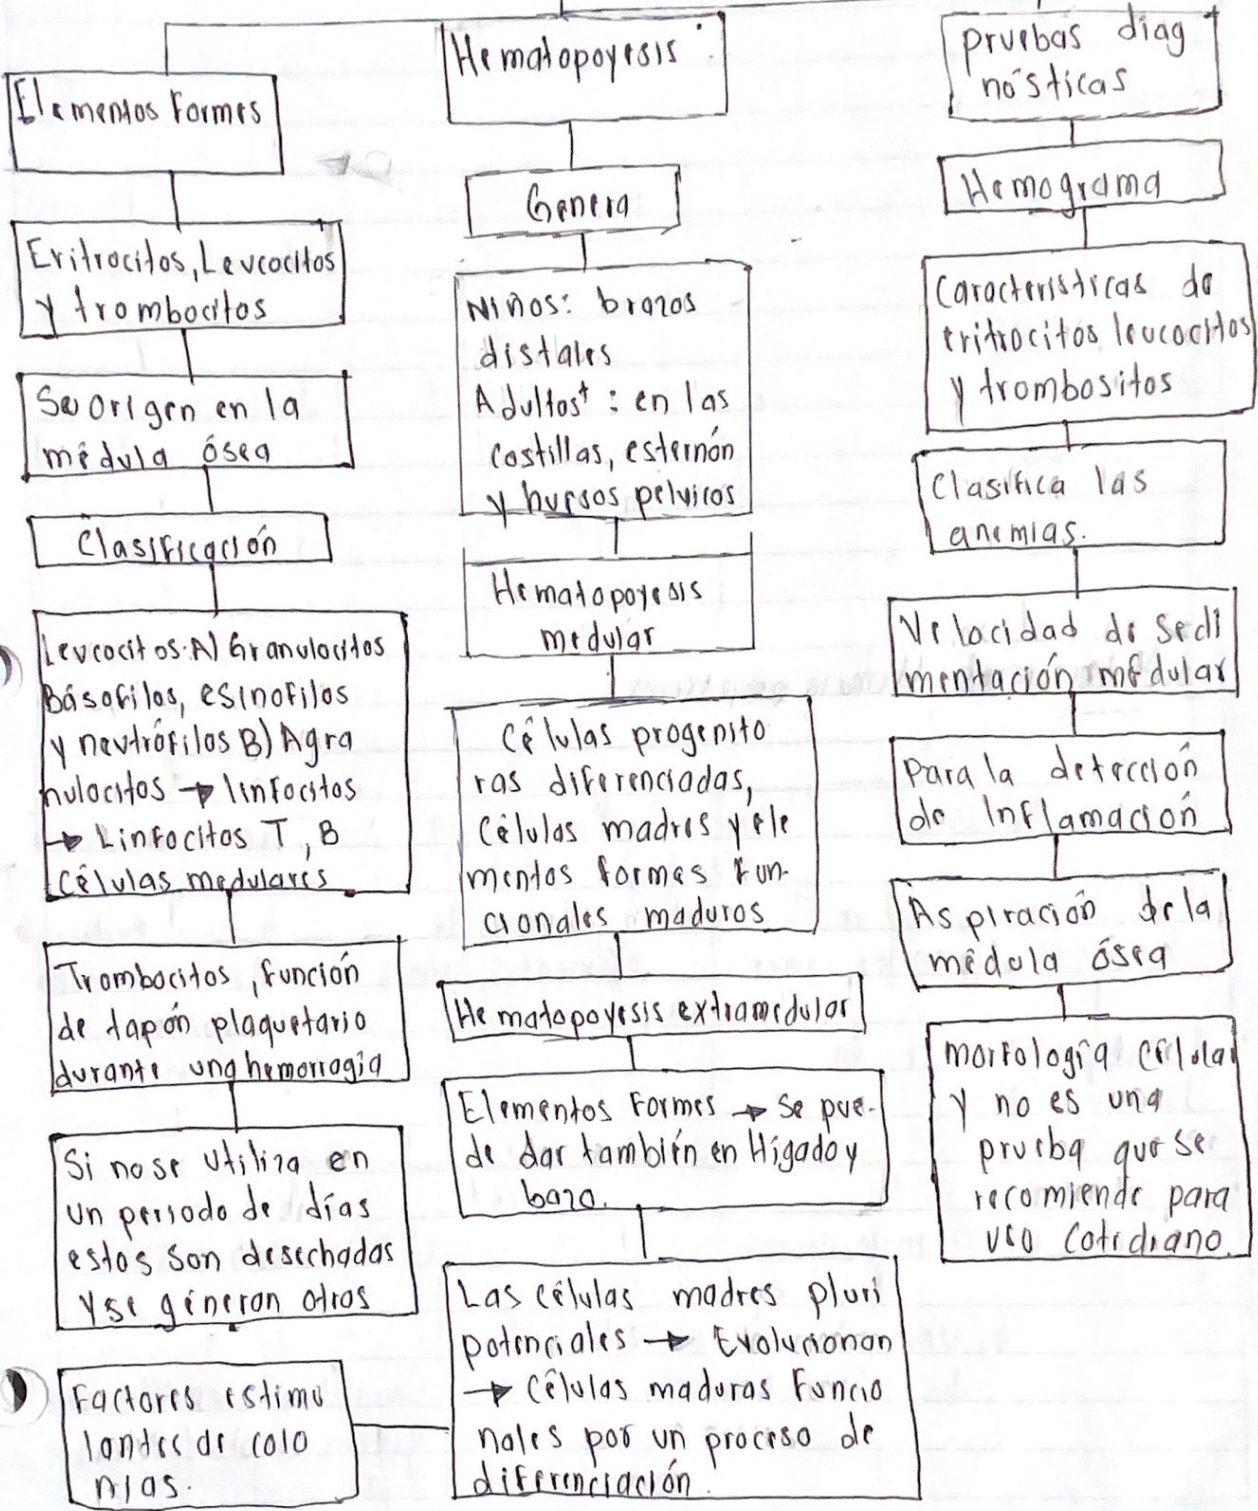 Elementos Formes
Eritrocitos, Leucocitos
y trombocitos
Su origen en la
médula ósea
Clasificación
Leucocitos: A) Granulocitos
Básofilos, esinofilos
y neutrófilos B) Agra
nulocitos → linfocitos
→ Linfocitos T, B
Células medulares
Trombocitos, función
de tapón plaquetario
durante una hemorragia
Si no se utiliza en
un periodo de días
estos son desechados
y se géneran otros
Factores estimu
lantes de colo
nias.
Hematopoyesis
Genera
Niños: brazos
distales
Adultos+: en las
costillas, esternón
y huesos pelvicos
Hematopoyesis
medular
Células progenito
ras diferenciadas,
Células madres y ele
mentos formes fun-
cionales maduros
Hematopoyesis extramedular
Elementos Formes → Se pue-
de dar también en Hígado y
bazo.
Las células madres pluri
potenciales → Evolucionan
→ Células maduras Funcio
nales por un proceso de
diferenciación.
pruebas diag
nósticas
Hemograma
Características de
eritrocitos leucocitos
y trombositos
Clasifica las
anemias.
Velocidad de sedi
mentación médular
Para la detección
de Inflamación
Aspiración de la
médula ósea
morfología célular
y no es una
prueba que se
recomiende para
uso cotidiano.